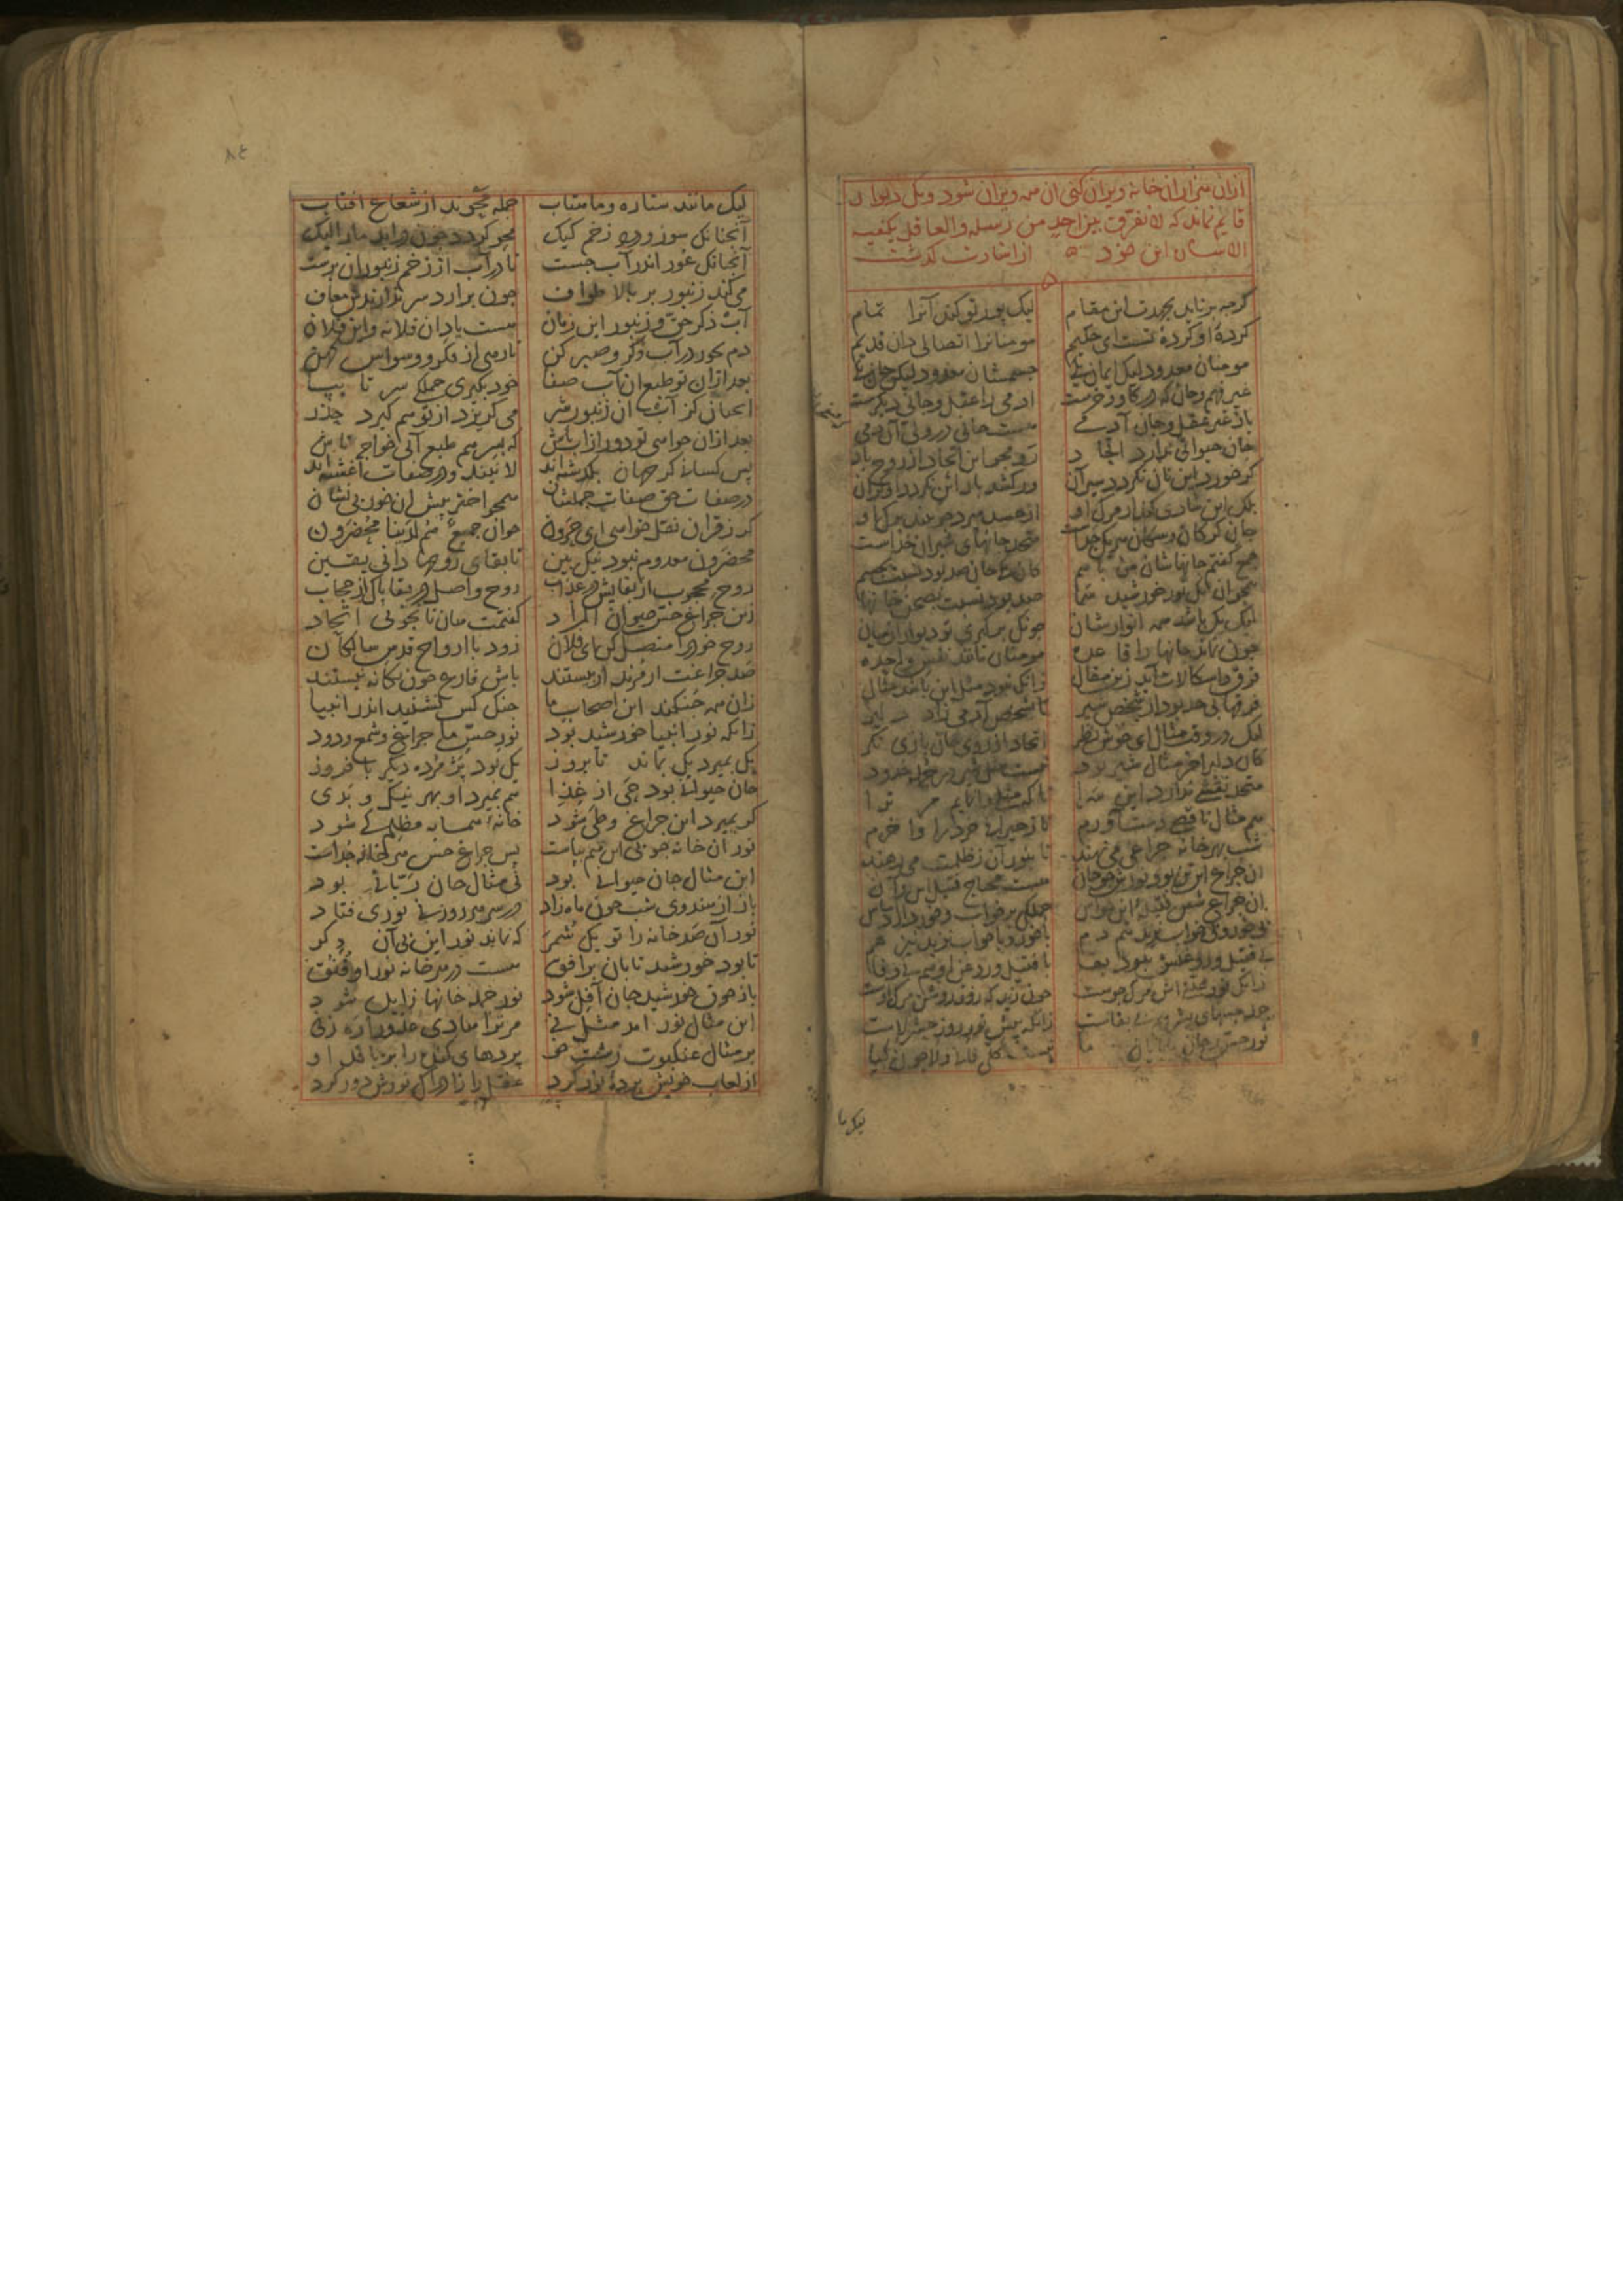 ازان منزل ان خانه ویران کنی ان همه ویران شود و یک دیوار
قایم نماند که لا نفرق بین احد من رسله والعاقل یکفیه
الاشاره این خود از اشارت گذشت
گرچه برناید بجهدت این مقام لیک پور تو کند آنرا تمام
کرده او کرده تست ای حکیم مومنانرا اتصالی دان قدیم
مومنان معدود لیک ایمان یکی جسمشان معدود لیکن جان یکی
غیر فهم و جان که در گاو و خرست ادمی را عقل و جانی دیگرست
باز غیر عقل و جان آدمی هست جانی در ولی آن دمی
جان حیوانی ندارد اتحاد تو مجو این اتحاد از روح باد
گر خورد این نان نگردد سیر آن ور کشد بار این نگردد او گران
بلک این شادی کند از مرگ او از حسد میرد چو بیند برگ او
جان گرگان و سگان هر یک جداست متحد جانهای شیران خداست
جمع گفتم جانهاشان من باسم کان یک جان صد بود نسبت بجسم
همچو ان یک نور خورشید سما صد بود نسبت بصحن خانها
لیک یک باشد همه انوارشان چونک برگیری تو دیوار از میان
چون نماند جانها را قاعده مومنان مانند نفس واحده
فرق و اشکالات آید زین مقال زانک نبود مثل این باشد مثال
فرقها بی حد بود از شخص شیر تا بشخص آدمی زاد دلیر
لیک در وقت مثال ای خوش نظر اتحاد از روی جان بازی نگر
کان دلیر اخر مثال شیر بود نیست مثل شیر در جمله حدود
متحد نقشی ندارد این سرا تا که مثلی وانمایم مر ترا
هم مثال ناقصی دست آورم تا ز حیرانی خرد را وا خرم
شب بهر خانه چراغی می نهند تا بنور آن ز ظلمت می رهند
ان چراغ این تن بود نورش چو جان هست محتاج فتیل این و آن
ان چراغ شش فتیله این حواس جملگی بر خواب و خور دارد اساس
بی خور و بی خواب نزید نیم دم با خور و با خواب نزید نیز هم
بی فتیل و روغنش نبود بقا با فتیل و روغن او هم بی وفا
زانک نور علتی اش مرگ جوست چون زید که روز روشن مرگ اوست
جمله حسهای بشر هم بی بقاست زانکه پیش نور روز حشر لاست
نور حس و جان بابایان ما نیست کلی فانی و لا چون گیا
لیک ما
لیک مانند ستاره و ماهتاب جمله محوند از شعاع افتاب
آنچنانک سوز و درد زخم کیک محو گردد چون دراید مار الیک
آنچنانک عور اندر آب جست تا در آب از زخم زنبوران برست
می کند زنبور بر بالا طواف چون برارد سر ندارندش معاف
آب ذکر حق و زنبور این زمان هست یاد ان فلانه و این فلان
دم بخور در آب ذکر و صبر کن تا رهی از فکر و وسواس کهن
بعد ازان تو طبع ان آب صفا خود بگیری جملگی سر تا بپا
انچنان کز آب ان زنبور شر می گریزد از تو هم گیرد حذر
بعد ازان خواهی تو دور از آب باش که بسر هم طبع آبی خواجه تاش
پس کسانی کز جهان بگذشته اند لا نیند و در صفات آغشته اند
در صفات حق صفات جملشان همچو اختر پیش ان خور بی نشان
گر ز قران نقل خواهی ای حرون خوان جمیع هم لدینا محضرون
محضرون معدوم نبود نیک بین تا بقای روحها دانی یقین
روح محجوب از بقا بس در عذاب روح واصل در بقا پاک از حجاب
زین چراغ حس حیوان المراد گفتمت هان تا نجویی اتحاد
روح خود را متصل کن ای فلان زود با ارواح قدس سالکان
صد چراغت ار مرند ار بیستند باش فارغ چون یگانه نیستند
زان همه جنگند این اصحاب ما جنگ کس نشنید اندر انبیا
زانکه نور انبیا خورشید بود نور حس ما چراغ و شمع و دود
یک بمیرد یک بماند تا بروز یک بود پژمرده دیگر با فروز
جان حیوانی بود حی از غذا هم بمیرد او بهر نیک و بدی
گر بمیرد این چراغ و طی شود خانه همسایه مظلم کی شود
نور آن خانه چو بی این هم بپاست پس چراغ حس هر خانه جداست
این مثال جان حیوانی بود نی مثال جان ربانی بود
باز از هندوی شب چون ماه زاد در سر هر روزنی نوری فتاد
نور آن صد خانه را تو یک شمر که نماند نور این بی آن دگر
تا بود خورشید تابان بر افق هست در هر خانه نور او قنق
باز چون خورشید جان آفل شود نور جمله خانها زایل شود
این مثال نور امد مثل نی مر ترا هادی عدو را ره زنی
بر مثال عنکبوت زشت خو پردهای گنده را بر بافد او
از لعاب خویش پرده نور کرد عقل را زادراک نورش دور کرد